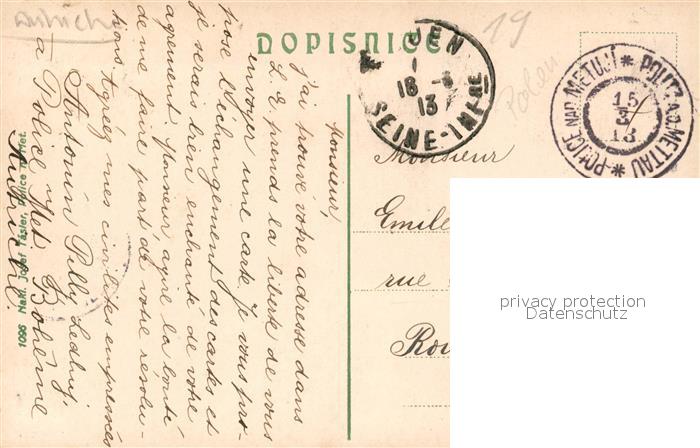 DOPISNICE
Autriche
19
Polen
Monsieur,
j'ai trouvé votre adresse dans
L. E. prends la liberté de vous
envoyer une carte. Je vous pro-
pose l'échangement des cartes et
je serais bien enchanté de votre
agrément. Monsieur, ayez la bonté
de me faire part de votre resolu-
tion. Agréez mes civilités empressées
Antonín Pilly,
à Police n/Met. Bohême
Autriche.
1096 Nakl. Josef Tásler, Police n. Met.
18 -3
13
SEINE-INFRE
POLICE NAD METUJÍ * POLITZ A.D. METTAU *
15
3
13
Monsieur
Emile
rue
Rou
privacy protection
Datenschutz